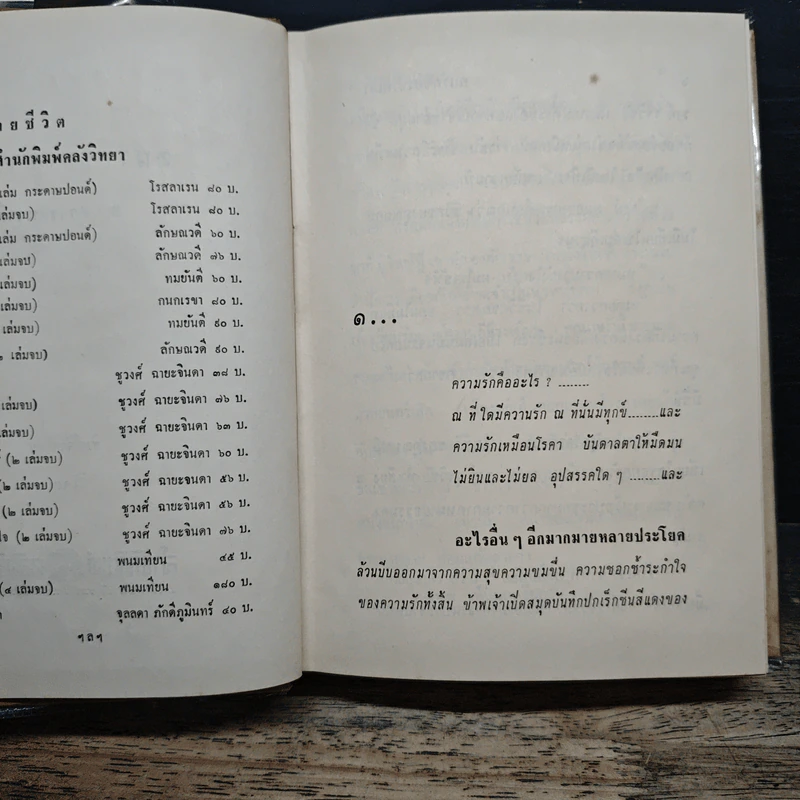 ยชีวิต
สำนักพิมพ์คลังวิทยา
เล่ม กระดาษปอนด์) โรสลาเรน ๘๐ บ.
เล่มจบ) โรสลาเรน ๘๐ บ.
เล่ม กระดาษปอนด์) ลักษณวดี ๖๐ บ.
เล่มจบ) ลักษณวดี ๗๖ บ.
เล่มจบ) ทมยันตี ๖๐ บ.
เล่มจบ) กนกเรขา ๘๐ บ.
เล่มจบ) ทมยันตี ๙๐ บ.
เล่มจบ) ลักษณวดี ๙๐ บ.
ชูวงศ์ ฉายะจินดา ๓๘ บ.
เล่มจบ) ชูวงศ์ ฉายะจินดา ๗๖ บ.
เล่มจบ) ชูวงศ์ ฉายะจินดา ๖๓ บ.
(๒ เล่มจบ) ชูวงศ์ ฉายะจินดา ๖๐ บ.
(๒ เล่มจบ) ชูวงศ์ ฉายะจินดา ๕๖ บ.
(๒ เล่มจบ) ชูวงศ์ ฉายะจินดา ๕๖ บ.
ใจ (๒ เล่มจบ) ชูวงศ์ ฉายะจินดา ๗๖ บ.
พนมเทียน ๔๕ บ.
(๔ เล่มจบ) พนมเทียน ๑๘๐ บ.
จุลลดา ภักดีภูมินทร์ ๔๐ บ.
ฯลฯ
๑...
ความรักคืออะไร ? ........
ณ ที่ใดมีความรัก ณ ที่นั้นมีทุกข์........และ
ความรักเหมือนโรคา บันดาลตาให้มืดมน
ไม่ยินและไม่ยล อุปสรรคใด ๆ ........และ
อะไรอื่น ๆ อีกมากมายหลายประโยค
ล้วนบีบออกมาจากความสุขความขมขื่น ความชอกช้ำระกำใจ
ของความรักทั้งสิ้น ข้าพเจ้าเปิดสมุดบันทึกปกเร็กซีนสีแดงของ